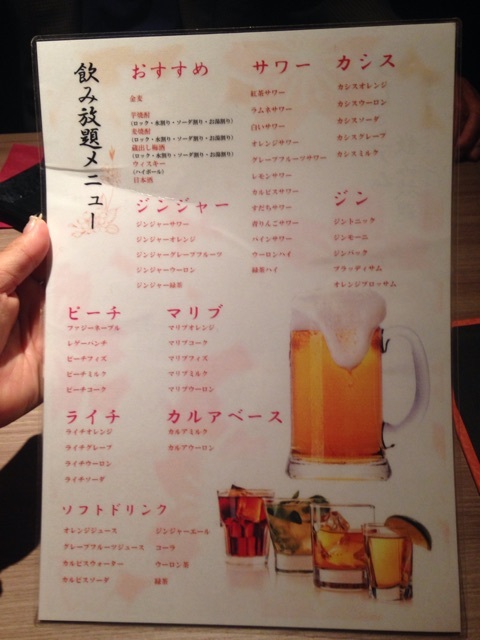 飲み放題メニュー
おすすめ
金麦
芋焼酎
(ロック・水割り・ソーダ割り・お湯割り)
麦焼酎
(ロック・水割り・ソーダ割り・お湯割り)
蔵出し梅酒
(ロック・水割り・ソーダ割り・お湯割り)
ウィスキー
(ハイボール)
日本酒
サワー
紅茶サワー
ラムネサワー
白いサワー
オレンジサワー
グレープフルーツサワー
レモンサワー
カルピスサワー
すだちサワー
青りんごサワー
パインサワー
ウーロンハイ
緑茶ハイ
カシス
カシスオレンジ
カシスウーロン
カシスソーダ
カシスグレープ
カシスミルク
ジンジャー
ジンジャーサワー
ジンジャーオレンジ
ジンジャーグレープフルーツ
ジンジャーウーロン
ジンジャー緑茶
ジン
ジントニック
ジンモーニ
ジンバック
ブラッディサム
オレンジブロッサム
ピーチ
ファジーネーブル
レゲーパンチ
ピーチフィズ
ピーチミルク
ピーチコーク
マリブ
マリブオレンジ
マリブコーク
マリブフィズ
マリブミルク
マリブウーロン
ライチ
ライチオレンジ
ライチグレープ
ライチウーロン
ライチソーダ
カルアベース
カルアミルク
カルアウーロン
ソフトドリンク
オレンジジュース
グレープフルーツジュース
カルピスウォーター
カルピスソーダ
ジンジャーエール
コーラ
ウーロン茶
緑茶